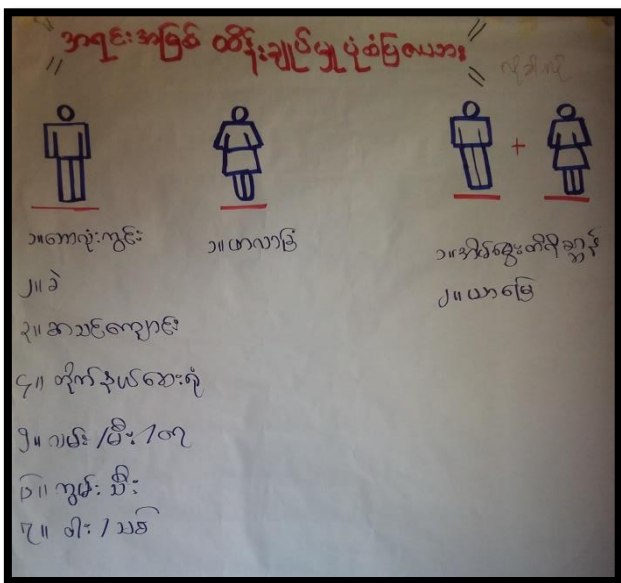 အရင်းအမြစ် ထိန်းချုပ်မှု ပုံစံပြဇယား
+
၁။ဘောလုံးကွင်း
၂။ ခဲ
၃။ စာသင်ကျောင်း
၄။ တိုက်နယ်ဆေးရုံ
၅။ လမ်း /မီး /
၆။ ကွမ်းသီး
၇။ ဝါး / သစ်
၁။ယာလာခြံ
၁။အိမ်မွေးတိရိစ္ဆာန်
၂။ ယာမြေ